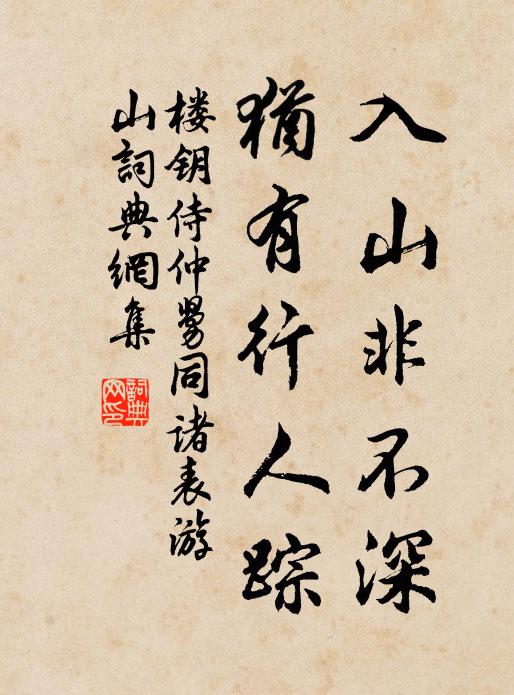 入山非不深
犹有行人踪
楼钥侍仲舅同诸表游
山词典網集
詞典网印